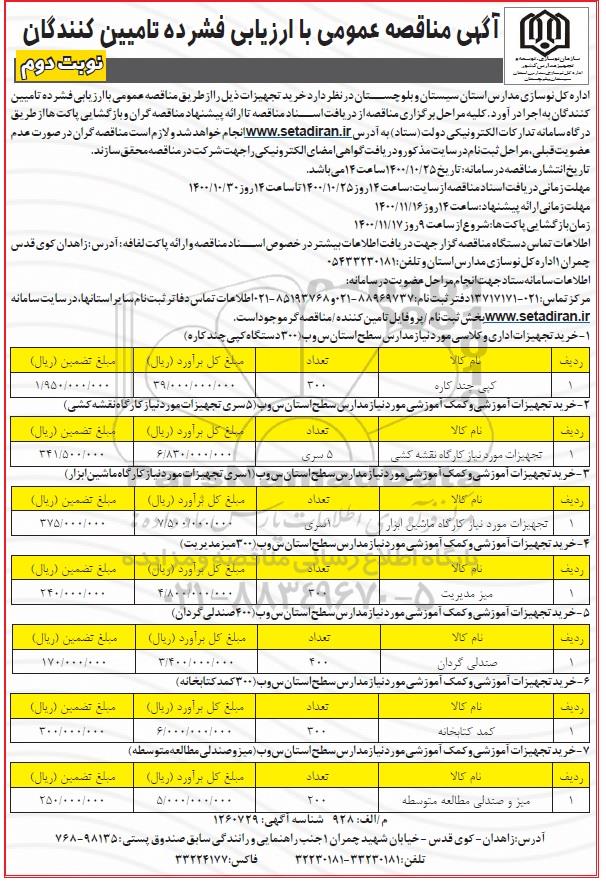 آگهی مناقصه عمومی با ارزیابی فشرده تامیین کنندگان
نوبت دوم
سازمان نوسازی، توسعه و
تجهیز مدارس کشور
اداره کل نوسازی مدارس استان
سیستان و بلوچستان
اداره کل نوسازی مدارس استان سیستان و بلوچستان در نظر دارد خرید تجهیزات ذیل را از طریق مناقصه عمومی با ارزیابی فشرده تامیین
کنندگان به اجرا در آورد. کلیه مراحل برگزاری مناقصه از دریافت اسناد مناقصه تا ارائه پیشنهاد مناقصه گران و بازگشایی پاکت ها از طریق
درگاه سامانه تدارکات الکترونیکی دولت (ستاد) به آدرس www.setadiran.ir انجام خواهد شد و لازم است مناقصه گران در صورت عدم
عضویت قبلی، مراحل ثبت نام در سایت مذکور و دریافت گواهی امضای الکترونیکی را جهت شرکت در مناقصه محقق سازند.
تاریخ انتشار مناقصه در سامانه: تاریخ ۱۴۰۰/۱۰/۲۵ ساعت ۱۴ می باشد.
مهلت زمانی دریافت اسناد مناقصه از سایت: ساعت ۱۴ روز ۱۴۰۰/۱۰/۲۵ تا ساعت ۱۴ روز ۱۴۰۰/۱۰/۳۰
مهلت زمانی ارائه پیشنهاد: ساعت ۱۴ روز ۱۴۰۰/۱۱/۱۶
زمان بازگشایی پاکت ها: شروع از ساعت ۹ روز ۱۴۰۰/۱۱/۱۷
اطلاعات تماس دستگاه مناقصه گزار جهت دریافت اطلاعات بیشتر در خصوص اسناد مناقصه و ارائه پاکت لفافه: آدرس: زاهدان کوی قدس
چمران ۱ اداره کل نوسازی مدارس استان و تلفن: ۰۵۴۳۳۲۳۰۱۸۱
اطلاعات سامانه ستاد جهت انجام مراحل عضویت در سامانه:
مرکز تماس: ۰۲۱-۱۳۷۱۷۱۷۱ دفتر ثبت نام: ۰۲۱-۸۸۹۶۹۷۳۷ و ۰۲۱-۸۵۱۹۳۷۶۸ اطلاعات تماس دفاتر ثبت نام سایر استانها، در سایت سامانه
www.setadiran.ir بخش ثبت نام / پروفایل تامین کننده / مناقصه گر موجود است.
۱- خرید تجهیزات اداری و کلاسی مورد نیاز مدارس سطح استان س و ب (۳۰۰ دستگاه کپی چند کاره)
ردیف نام کالا تعداد مبلغ کل برآورد (ریال) مبلغ تضمین (ریال)
۱ کپی چند کاره ۳۰۰ ۳۹/۰۰۰/۰۰۰/۰۰۰ ۱/۹۵۰/۰۰۰/۰۰۰
۲- خرید تجهیزات آموزشی و کمک آموزشی مورد نیاز مدارس سطح استان س و ب (۵ سری تجهیزات مورد نیاز کارگاه نقشه کشی)
ردیف نام کالا تعداد مبلغ کل برآورد (ریال) مبلغ تضمین (ریال)
۱ تجهیزات مورد نیاز کارگاه نقشه کشی ۵ سری ۶/۸۳۰/۰۰۰/۰۰۰ ۳۴۱/۵۰۰/۰۰۰
۳- خرید تجهیزات آموزشی و کمک آموزشی مورد نیاز مدارس سطح استان س و ب (۱ سری تجهیزات مورد نیاز کارگاه ماشین ابزار)
ردیف نام کالا تعداد مبلغ کل برآورد (ریال) مبلغ تضمین (ریال)
۱ تجهیزات مورد نیاز کارگاه ماشین ابزار ۱سری ۷/۵۰۰/۰۰۰/۰۰۰ ۳۷۵/۰۰۰/۰۰۰
۴- خرید تجهیزات آموزشی و کمک آموزشی مورد نیاز مدارس سطح استان س و ب (۳۰۰ میز مدیریت)
ردیف نام کالا تعداد مبلغ کل برآورد (ریال) مبلغ تضمین (ریال)
۱ میز مدیریت ۳۰۰ ۴/۸۰۰/۰۰۰/۰۰۰ ۲۴۰/۰۰۰/۰۰۰
۵- خرید تجهیزات آموزشی و کمک آموزشی مورد نیاز مدارس سطح استان س و ب (۴۰۰ صندلی گردان)
ردیف نام کالا تعداد مبلغ کل برآورد (ریال) مبلغ تضمین (ریال)
۱ صندلی گردان ۴۰۰ ۳/۴۰۰/۰۰۰/۰۰۰ ۱۷۰/۰۰۰/۰۰۰
۶- خرید تجهیزات آموزشی و کمک آموزشی مورد نیاز مدارس سطح استان س و ب (۳۰۰ کمد کتابخانه)
ردیف نام کالا تعداد مبلغ کل برآورد (ریال) مبلغ تضمین (ریال)
۱ کمد کتابخانه ۳۰۰ ۶/۰۰۰/۰۰۰/۰۰۰ ۳۰۰/۰۰۰/۰۰۰
۷- خرید تجهیزات آموزشی و کمک آموزشی مورد نیاز مدارس سطح استان س و ب (میز و صندلی مطالعه متوسطه)
ردیف نام کالا تعداد مبلغ کل برآورد (ریال) مبلغ تضمین (ریال)
۱ میز و صندلی مطالعه متوسطه ۲۰۰ ۵/۰۰۰/۰۰۰/۰۰۰ ۲۵۰/۰۰۰/۰۰۰
م/الف: ۹۲۸ شناسه آگهی: ۱۲۶۰۷۲۹
آدرس: زاهدان - کوی قدس - خیابان شهید چمران ۱ جنب راهنمایی و رانندگی سابق صندوق پستی: ۹۸۱۳۵-۷۶۸
تلفن: ۳۳۲۳۰۱۸۱-۳۳۲۳۰۱۸۲ فاکس: ۳۳۲۲۴۱۷۷
پایگاه اطلاع رسانی مناقصه و مزایده
۰۲۱-۸۸۳۴۹۶۷۰-۵